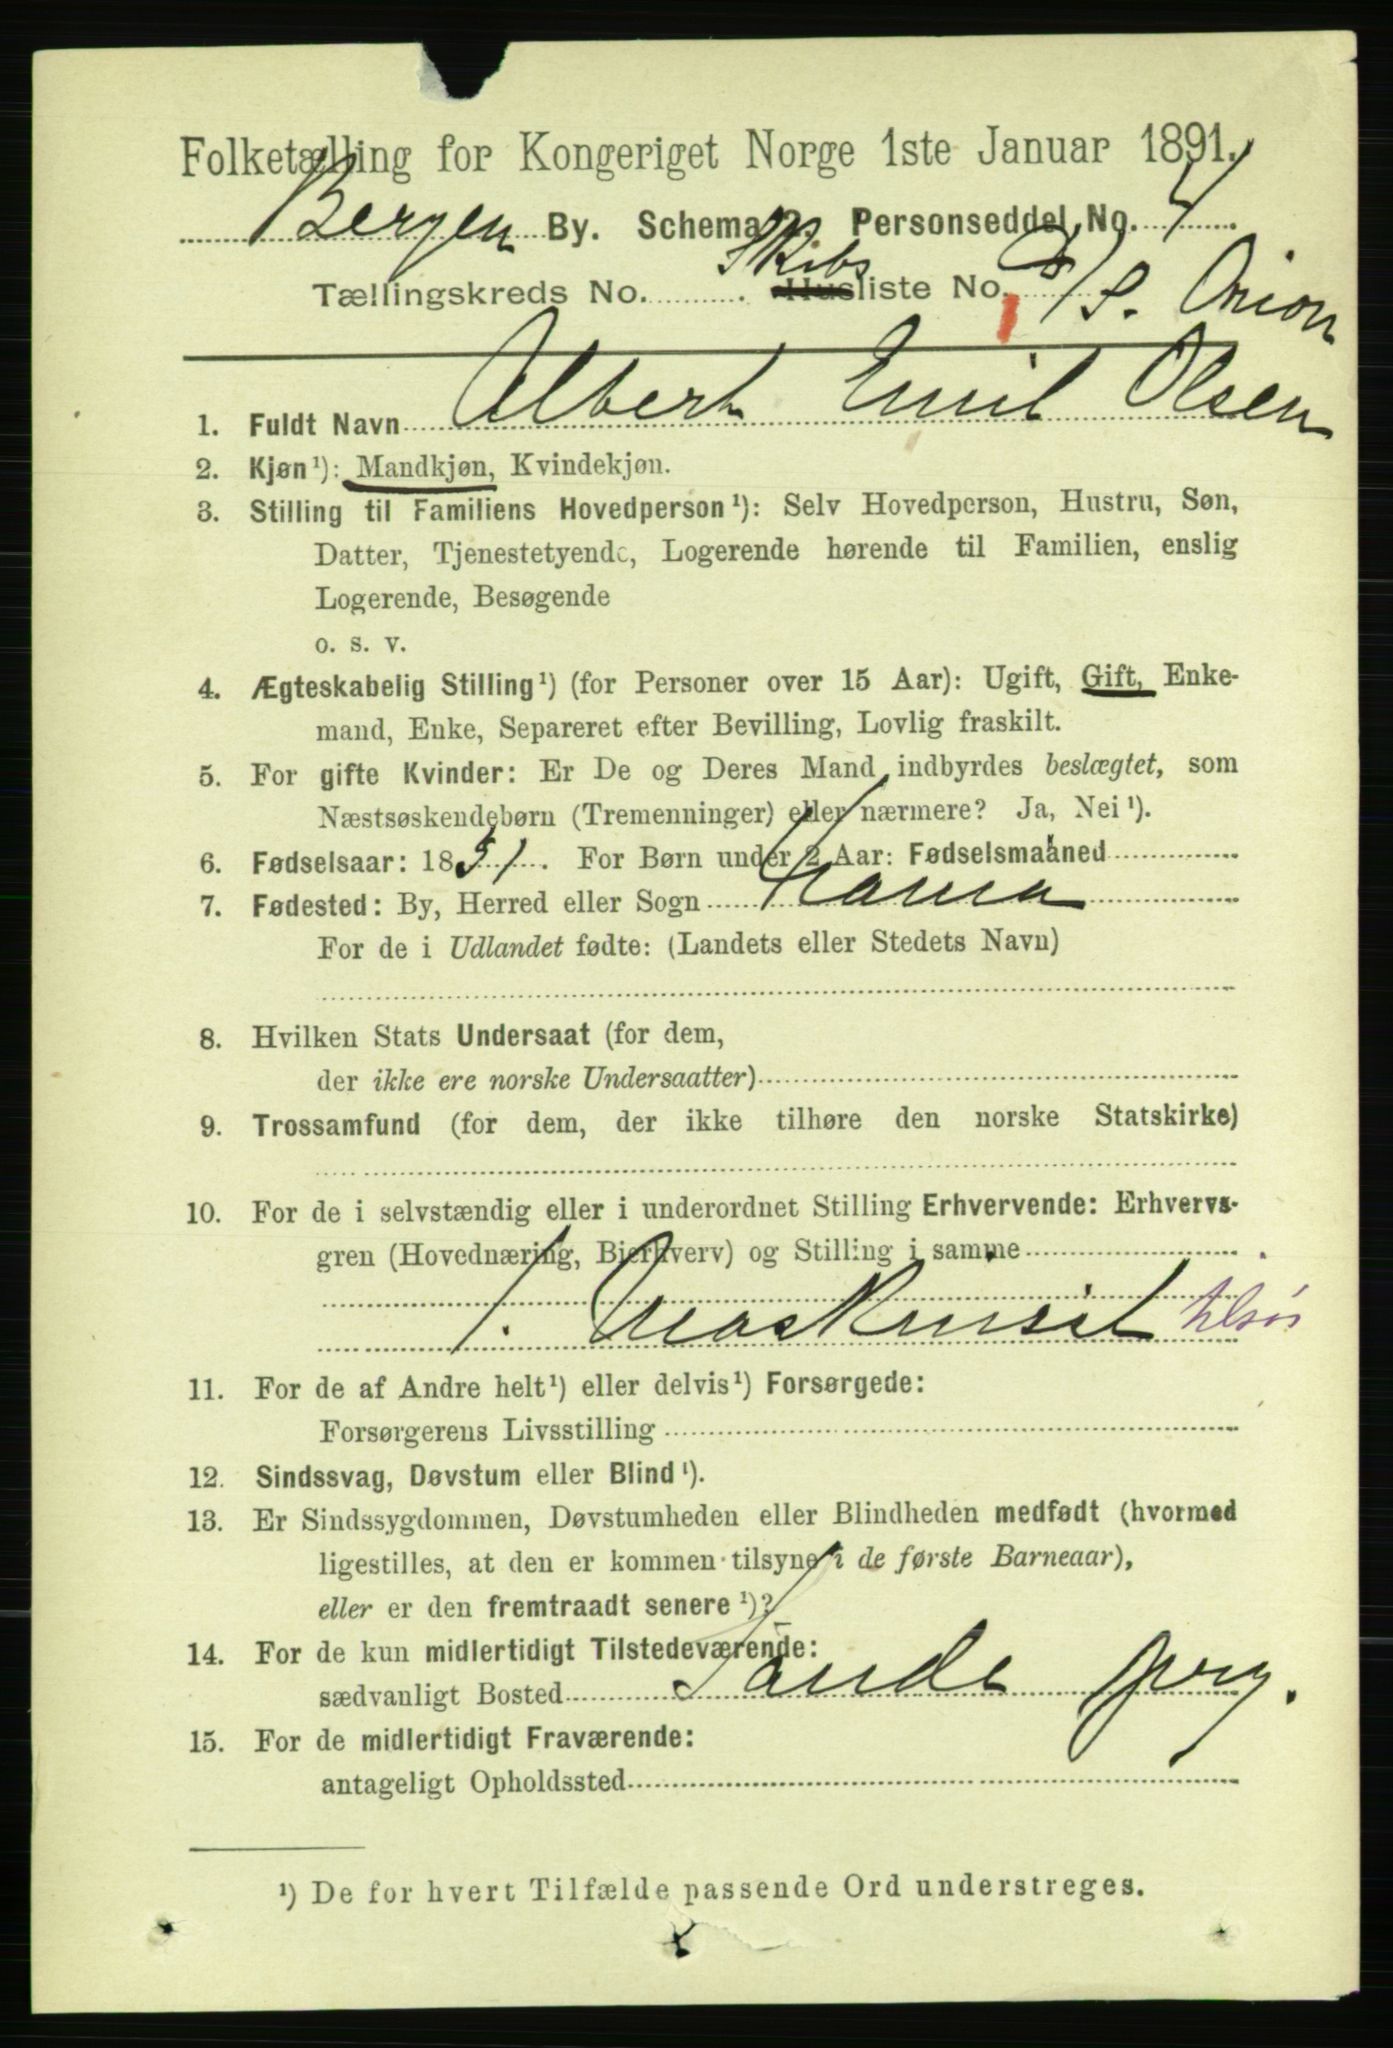 Folketælling for Kongeriget Norge 1ste Januar 1891.
Bergen By. Schema 2. Personseddel No. 4.
Tællingskreds No. . Skibs Husliste No. D/S. Orion
1. Fuldt Navn Albert Emil Olsen
2. Kjøn¹): Mandkjøn, Kvindekjøn.
3. Stilling til Familiens Hovedperson¹): Selv Hovedperson, Hustru, Søn,
Datter, Tjenestetyende, Logerende hørende til Familien, enslig
Logerende, Besøgende
o. s. v.
4. Ægteskabelig Stilling¹) (for Personer over 15 Aar): Ugift, Gift, Enke-
mand, Enke, Separeret efter Bevilling, Lovlig fraskilt.
5. For gifte Kvinder: Er De og Deres Mand indbyrdes beslægtet, som
Næstsøskendebørn (Tremenninger) eller nærmere? Ja, Nei¹).
6. Fødselsaar: 1851. For Børn under 2 Aar: Fødselsmaaned
7. Fødested: By, Herred eller Sogn
For de i Udlandet fødte: (Landets eller Stedets Navn)
8. Hvilken Stats Undersaat (for dem,
der ikke ere norske Undersaatter)
9. Trossamfund (for dem, der ikke tilhøre den norske Statskirke)
10. For de i selvstændig eller i underordnet Stilling Erhvervende: Erhvervs-
gren (Hovednæring, Bierhverv) og Stilling i samme
1. Maskinist tilsøs
11. For de af Andre helt¹) eller delvis¹) Forsørgede:
Forsørgerens Livsstilling
12. Sindssvag, Døvstum eller Blind¹).
13. Er Sindssygdommen, Døvstumheden eller Blindheden medfødt (hvormed
ligestilles, at den er kommen tilsyne i de første Barneaar),
eller er den fremtraadt senere¹)?
14. For de kun midlertidigt Tilstedeværende:
sædvanligt Bosted Sande
15. For de midlertidigt Fraværende:
antageligt Opholdssted
¹) De for hvert Tilfælde passende Ord understreges.